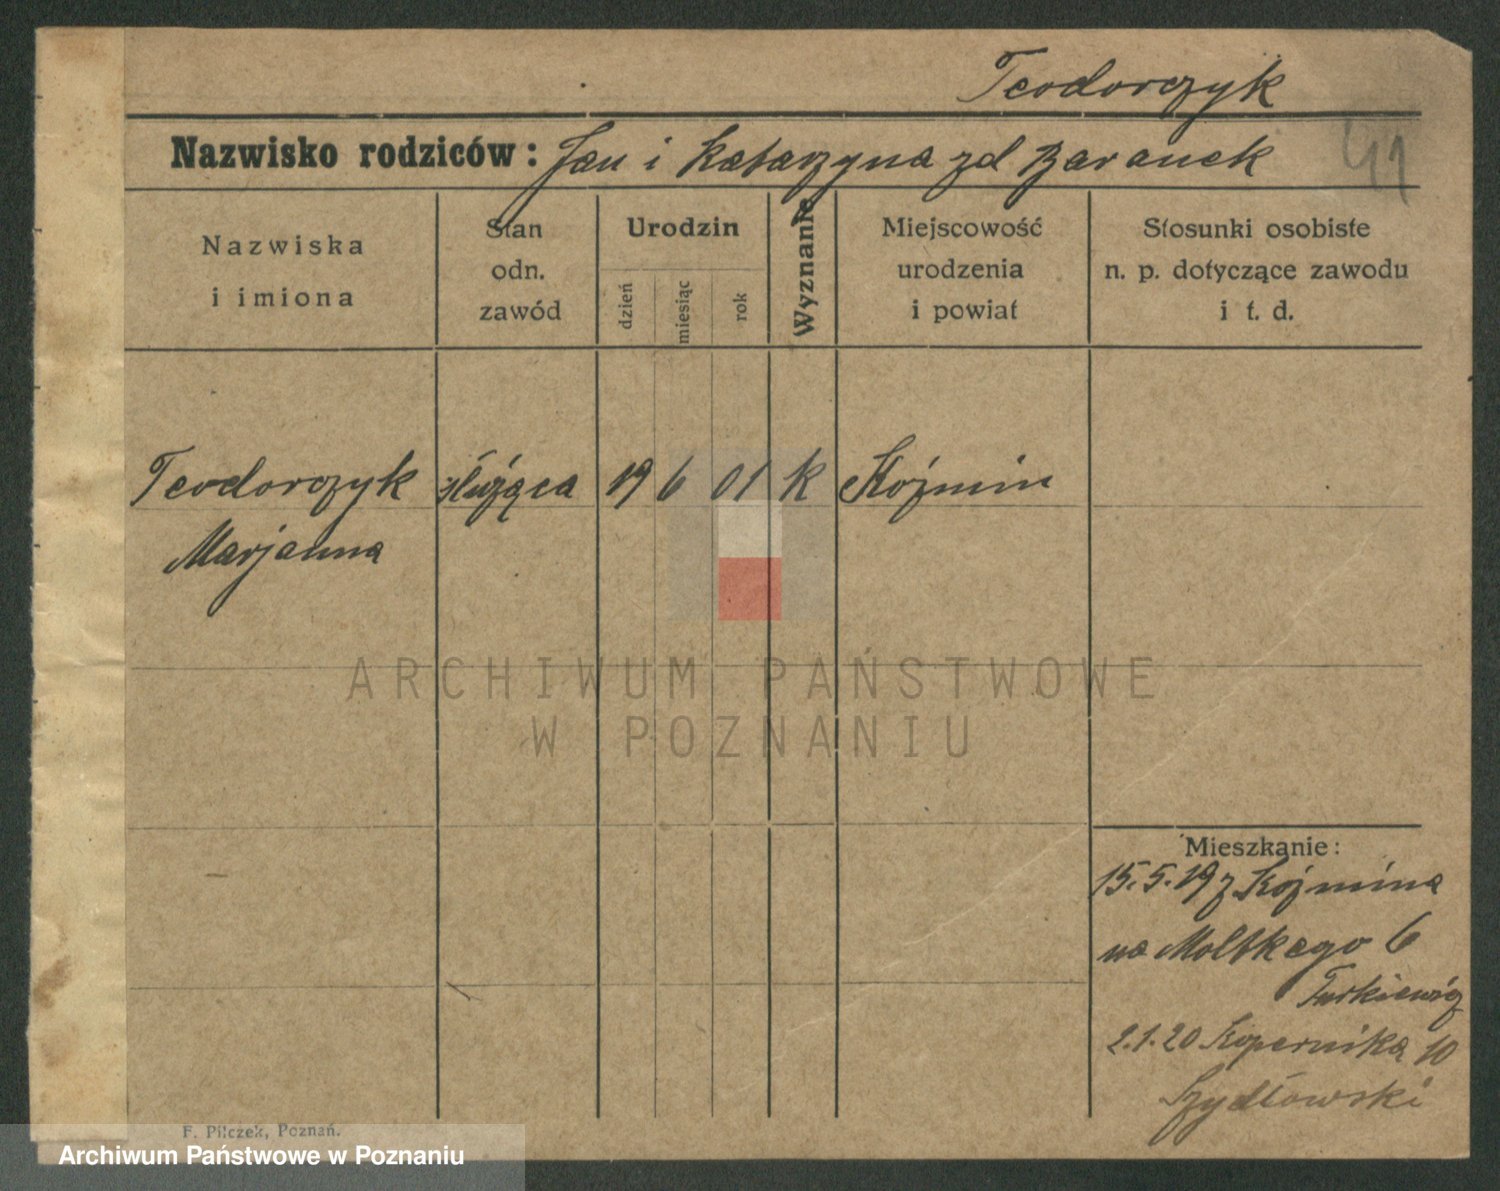 Teodorczyk
Nazwisko rodziców: Jan i Katarzyna zd Baranek
41
Nazwiska
i imiona
Stan
odn.
zawód
Urodzin
dzień
miesiąc
rok
Wyznanie
Miejscowość
urodzenia
i powiat
Stosunki osobiste
n. p. dotyczące zawodu
i t. d.
Teodorczyk służąca 19 6 01 k Koźmin
Marjanna
ARCHIWUM PAŃSTWOWE
W POZNANIU
Mieszkanie:
15.5.19 z Koźmina
na Moltkego 6
Turkiewicz
2.1.20 Kopernika 10
Szydłowski
F. Pilczek, Poznań.
Archiwum Państwowe w Poznaniu